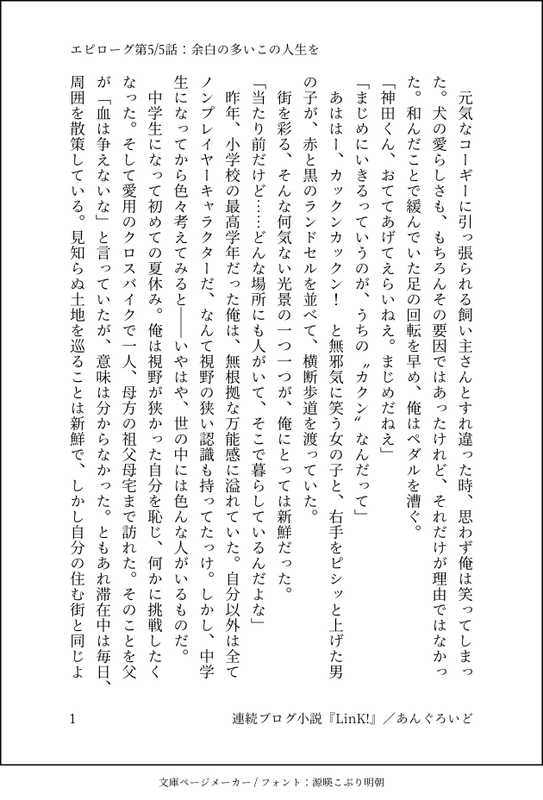 エピローグ第5/5話：余白の多いこの人生を
　元気なコーギーに引っ張られる飼い主さんとすれ違った時、思わず俺は笑ってしまっ
た。犬の愛らしさも、もちろんその要因ではあったけれど、それだけが理由ではなかっ
た。和んだことで緩んでいた足の回転を早め、俺はペダルを漕ぐ。
「神田くん、おててあげてえらいねえ。まじめだねえ」
「まじめにいきるっていうのが、うちの〝カクン〟なんだって」
　あははー、カックンカックン！　と無邪気に笑う女の子と、右手をピシッと上げた男
の子が、赤と黒のランドセルを並べて、横断歩道を渡っていた。
　街を彩る、そんな何気ない光景の一つ一つが、俺にとっては新鮮だった。
「当たり前だけど……どんな場所にも人がいて、そこで暮らしているんだよな」
　昨年、小学校の最高学年だった俺は、無根拠な万能感に溢れていた。自分以外は全て
ノンプレイヤーキャラクターだ、なんて視野の狭い認識も持ってたっけ。しかし、中学
生になってから色々考えてみると――いやはや、世の中には色んな人がいるものだ。
　中学生になって初めての夏休み。俺は視野が狭かった自分を恥じ、何かに挑戦したく
なった。そして愛用のクロスバイクで一人、母方の祖父母宅まで訪れた。そのことを父
が「血は争えないな」と言っていたが、意味は分からなかった。ともあれ滞在中は毎日、
周囲を散策している。見知らぬ土地を巡ることは新鮮で、しかし自分の住む街と同じよ
1
連続ブログ小説『LinK!』／あんぐろいど
文庫ページメーカー / フォント：源暎こぶり明朝